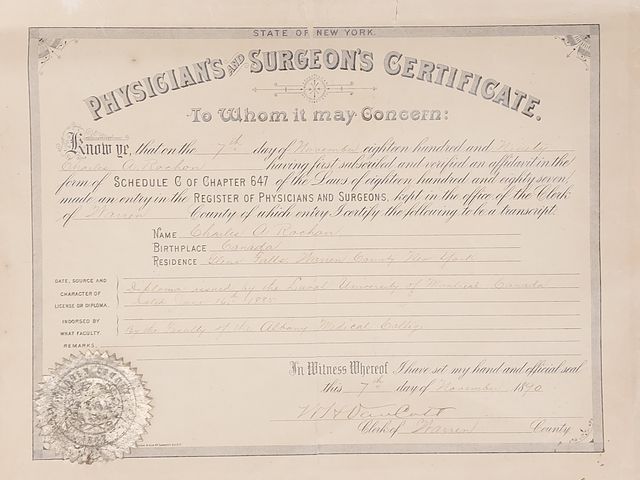 STATE OF NEW YORK.
PHYSICIAN'S AND SURGEON'S CERTIFICATE.
To Whom it may Concern:
Know ye, that on the 7th day of November eighteen hundred and Ninety
Charles A. Rochon having first subscribed and verified an affidavit in the
form of SCHEDULE C OF CHAPTER 647 of the Laws of eighteen hundred and eighty seven,
made an entry in the REGISTER OF PHYSICIANS AND SURGEONS, kept in the office of the Clerk
of Warren County of which entry I certify the following to be a transcript:
NAME Charles A Rochon
BIRTHPLACE Canada
RESIDENCE Glens Falls Warren County New York
DATE, SOURCE AND
CHARACTER OF
LICENSE OR DIPLOMA.
Diploma issued by the Laval University of Montreal Canada
dated June 16th
ENDORSED BY
WHAT FACULTY.
By the Faculty of the Albany Medical College
REMARKS.
In Witness Whereof I have set my hand and official seal
this 7th day of November 1890
Clerk of Warren County